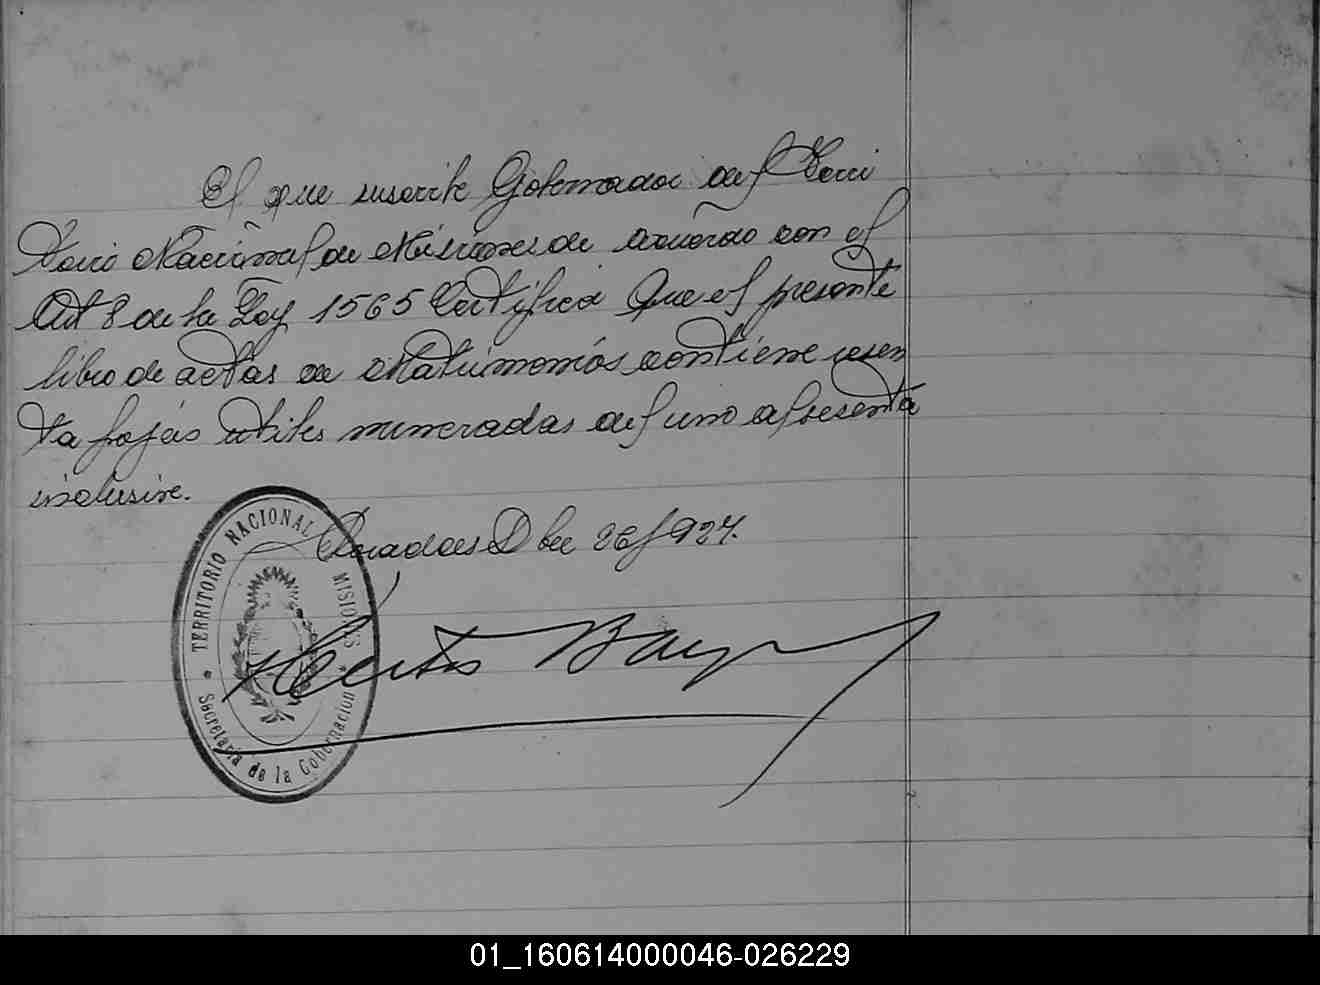 El que suscribe Gobernador del Terri
torio Nacional de Misiones de acuerdo con el
Art 8 de la Ley 1565 Certifica Que el presente
libro de actas de Matrimonios contiene sesen
ta fojas utiles numeradas del uno al sesenta
inclusive.
Posadas Dbre 26/927.
TERRITORIO NACIONAL MISIONES
Secretaria de la Gobernacion
01_160614000046-026229